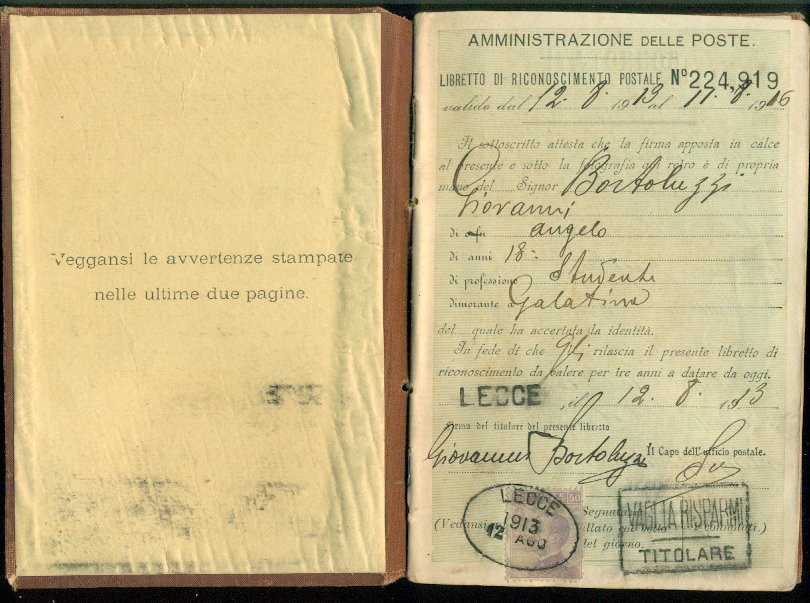 Veggansi le avvertenze stampate
nelle ultime due pagine.
AMMINISTRAZIONE DELLE POSTE.
LIBRETTO DI RICONOSCIMENTO POSTALE Nº 224,919
valido dal 12. 8. 1913 al 11. 8. 1916
Il sottoscritto attesta che la firma apposta in calce
al presente e sotto la fotografia qui retro è di propria
mano del Signor Bortoluzzi
Giovanni
di angelo
di anni 18
di professione Studente
dimorante a Galatina
del quale ha accertata la identità.
In fede di che gli rilascia il presente libretto di
riconoscimento da valere per tre anni a datare da oggi.
LECCE, il 12. 8. 1913
Firma del titolare del presente libretto
Il Capo dell'ufficio postale.
Giovanni Bortoluzzi
LECCE
1913
12 AGO
60
(Vedansi
Segnatasse
bollo
del giorno.
VAGLIA RISPARMI
TITOLARE